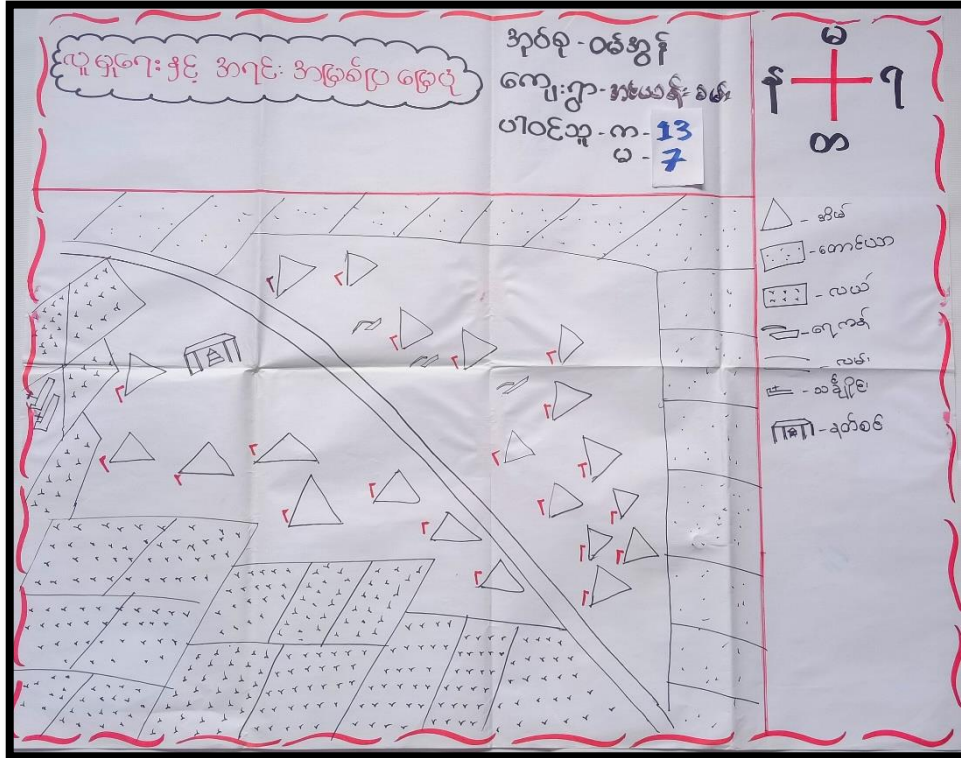 လူမှုရေးနှင့် အရင်းအမြစ်ပြ မြေပုံ
အုပ်စု - ဝမ်အွန်
ကျေးရွာ-
ပါဝင်သူ - က - 13
မ - 7
မ
န ရ
တ
- အိမ်
- တောင်ယာ
- လယ်
- ရေကန်
- လမ်း
- သင်္ချိုင်း
- နတ်စင်